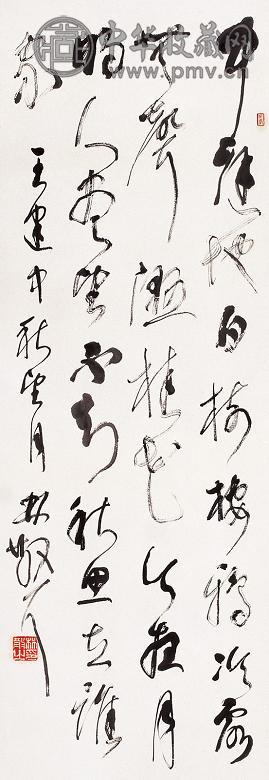 中华收藏网
www.pmv.cn
中庭地白樹棲鴉冷露
無聲濕桂花今夜月
明人盡望不知秋思在誰
家
王建中秋望月 林散之